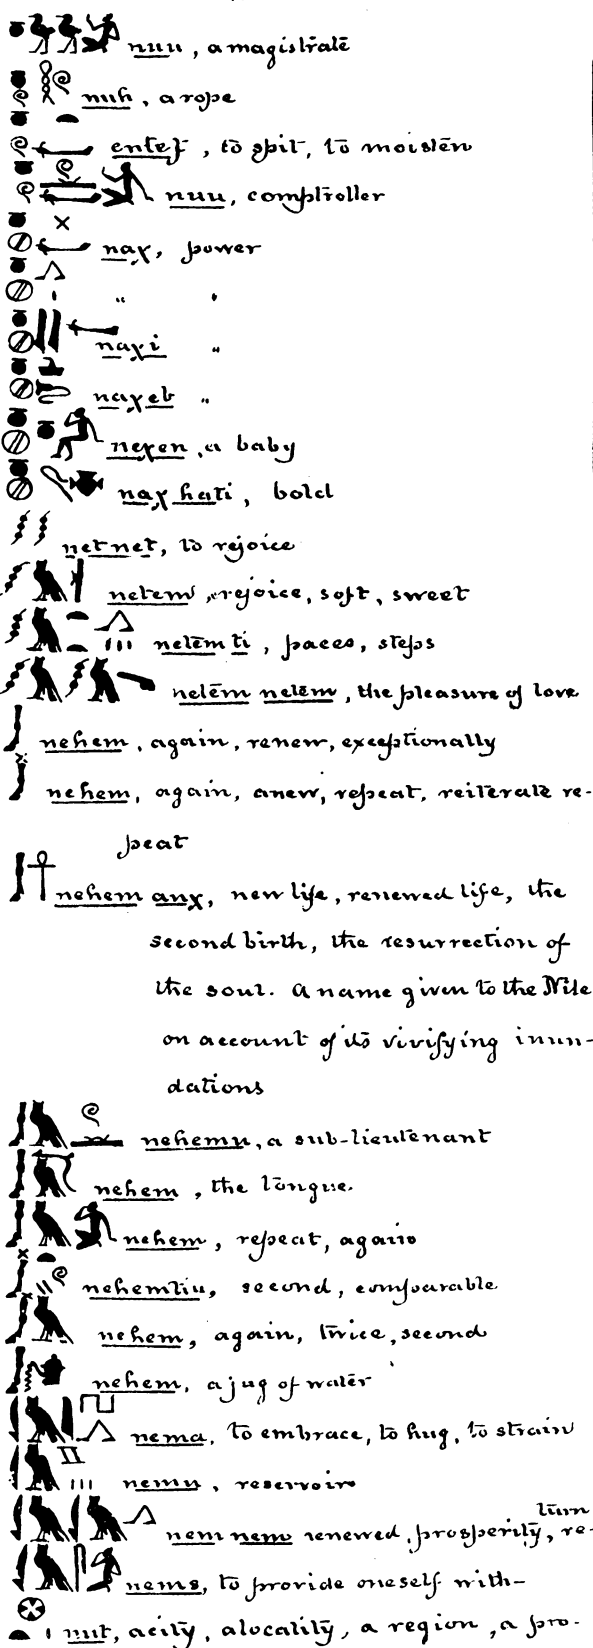 nuu, a magistrate
nuh, a rope
entef, to spit, to moisten
nuu, comptroller
naχ, power
" "
naχi "
naχeb "
neχen, a baby
naχ hati, bold
netnet, to rejoice
netem, rejoice, soft, sweet
netem ti, paces, steps
netem netem, the pleasure of love
nehem, again, renew, exceptionally
nehem, again, anew, repeat, reiterate re-
peat
nehem anχ, new life, renewed life, the
second birth, the resurrection of
the soul. A name given to the Nile
on account of its vivifying inun-
dations
nehemu, a sub-lieutenant
nehem, the tongue.
nehem, repeat, again
nehemtiu, second, comparable
nehem, again, twice, second
nehem, a jug of water
nema, to embrace, to hug, to strain
nemu, reservoir
turn
nem nem renewed, prosperity, re-
nems, to provide oneself with-
nut, a city, a locality, a region, a pro-